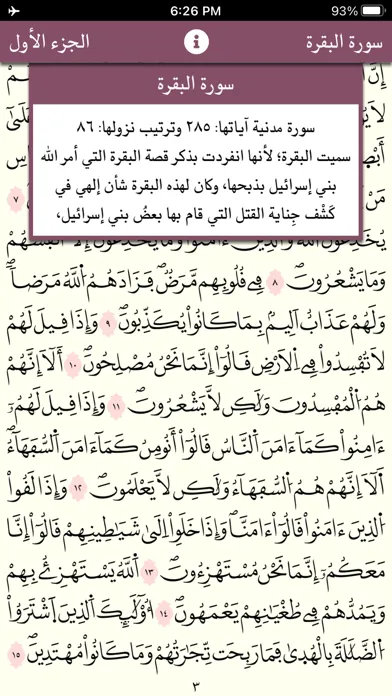 6:26 PM 93%
سورة البقرة
الجزء الأول
سورة البقرة
سورة مدنية آياتها: ٢٨٥ وترتيب نزولها: ٨٦
سميت البقرة؛ لأنها انفردت بذكر قصة البقرة التي أمر الله
بني إسرائيل بذبحها، وكان لهذه البقرة شأن إلهي في
كَشْف جِناية القتل التي قام بها بعضُ بني إسرائيل،
٧
وَمَا يَشْعُرُونَ ٨ فِي قُلُوبِهِم مَّرَضٌ فَزَادَهُمُ اللَّهُ مَرَضاً
وَلَهُمْ عَذَابٌ أَلِيمٌ بِمَا كَانُوا يُكَذِّبُونَ ٩ وَإِذَا قِيلَ لَهُمْ
لَا تُفْسِدُوا فِي الْأَرْضِ قَالُوا إِنَّمَا نَحْنُ مُصْلِحُونَ ١٠ أَلَا إِنَّهُمْ
هُمُ الْمُفْسِدُونَ وَلَكِن لَّا يَشْعُرُونَ ١١ وَإِذَا قِيلَ لَهُمْ
ءَامِنُوا كَمَا ءَامَنَ النَّاسُ قَالُوا أَنُومِنُ كَمَا ءَامَنَ السُّفَهَاءُ
أَلَا إِنَّهُمْ هُمُ السُّفَهَاءُ وَلَكِن لَّا يَعْلَمُونَ ١٢ وَإِذَا لَقُوا
الَّذِينَ ءَامَنُوا قَالُوا ءَامَنَّا وَإِذَا خَلَوْا اِلَى شَيَاطِينِهِمْ قَالُوا إِنَّا
مَعَكُمْ إِنَّمَا نَحْنُ مُسْتَهْزِءُونَ ١٣ اَللَّهُ يَسْتَهْزِئُ بِهِمْ
وَيَمُدُّهُمْ فِي طُغْيَانِهِمْ يَعْمَهُونَ ١٤ أُوْلَئِكَ الَّذِينَ اَشْتَرَوُا
الضَّلَالَةَ بِالْهُدَى فَمَا رَبِحَت تِّجَارَتُهُمْ وَمَا كَانُوا مُهْتَدِينَ ١٥
٣